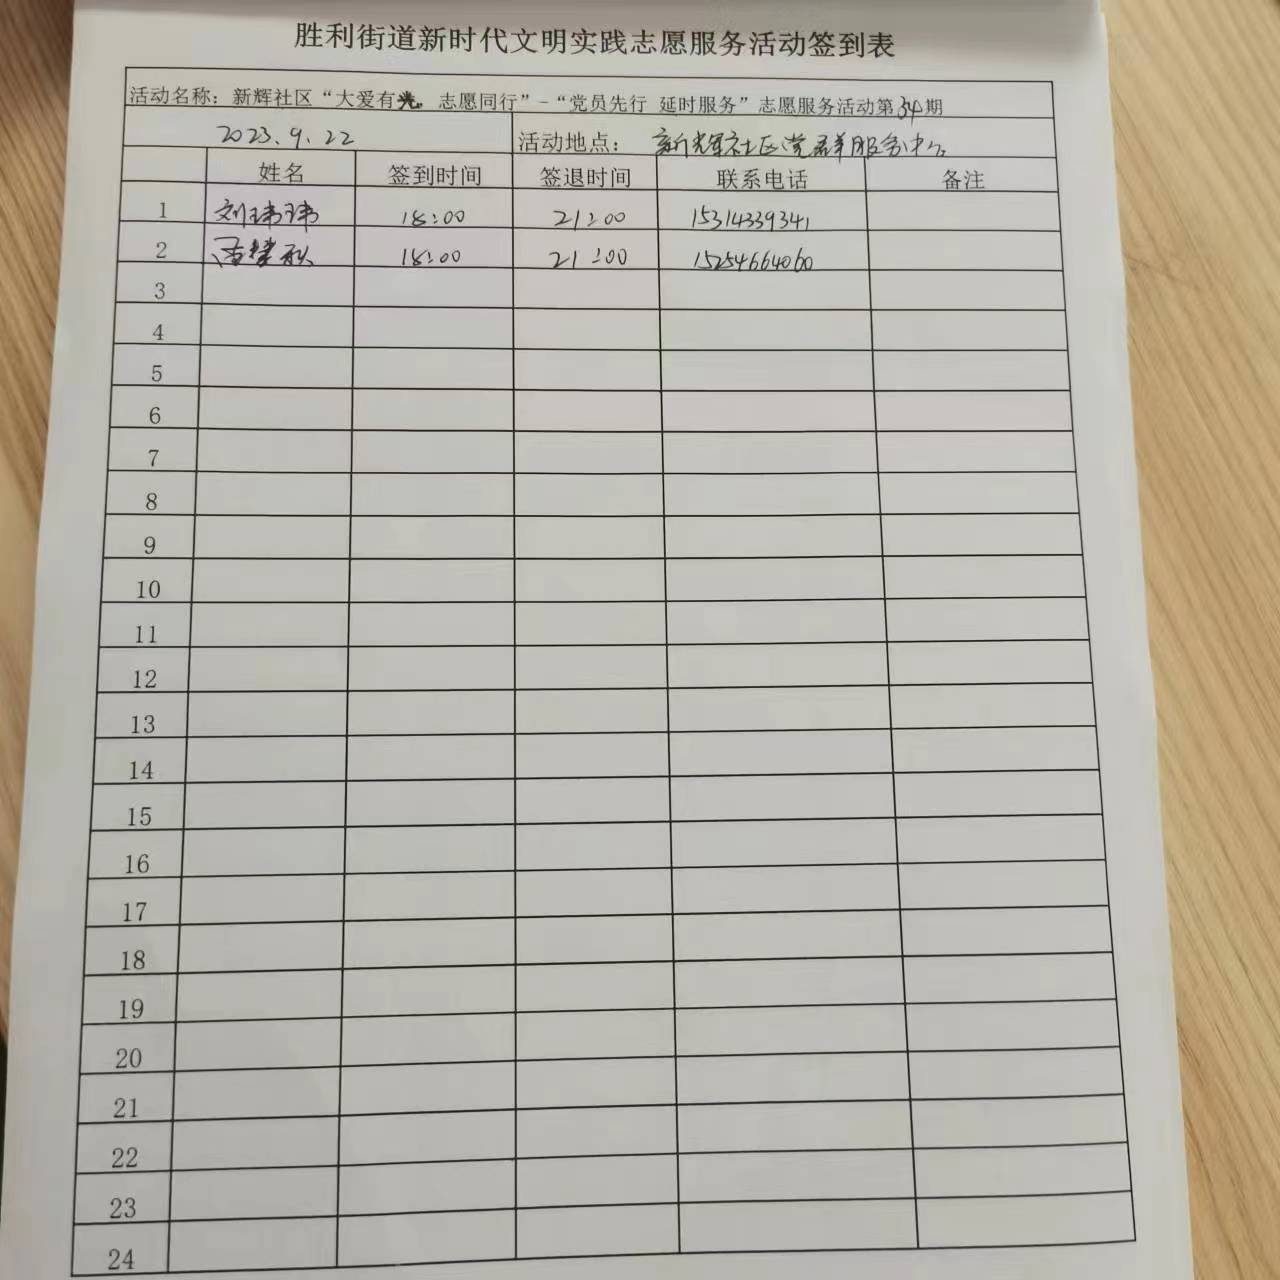 胜利街道新时代文明实践志愿服务活动签到表
活动名称：新辉社区“大爱有光。志愿同行”-“党员先行 延时服务”志愿服务活动第34期
2023.9.22 活动地点： 新辉社区党群服务中心
姓名 签到时间 签退时间 联系电话 备注
1 刘玮玮 18:00 21:00 15314339341
2 秋 18:00 21:00 15254664060
3
4
5
6
7
8
9
10
11
12
13
14
15
16
17
18
19
20
21
22
23
24